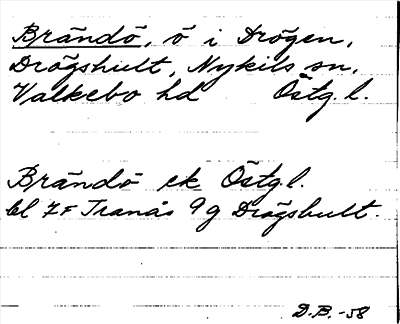 Brändö, ö i Drögen,
Drögshult, Nykils sn,
Valkebo hd Östg.l.
Brändö ek Östgl.
bl 7F Tranås 9g Drögshult.
D.B.-58